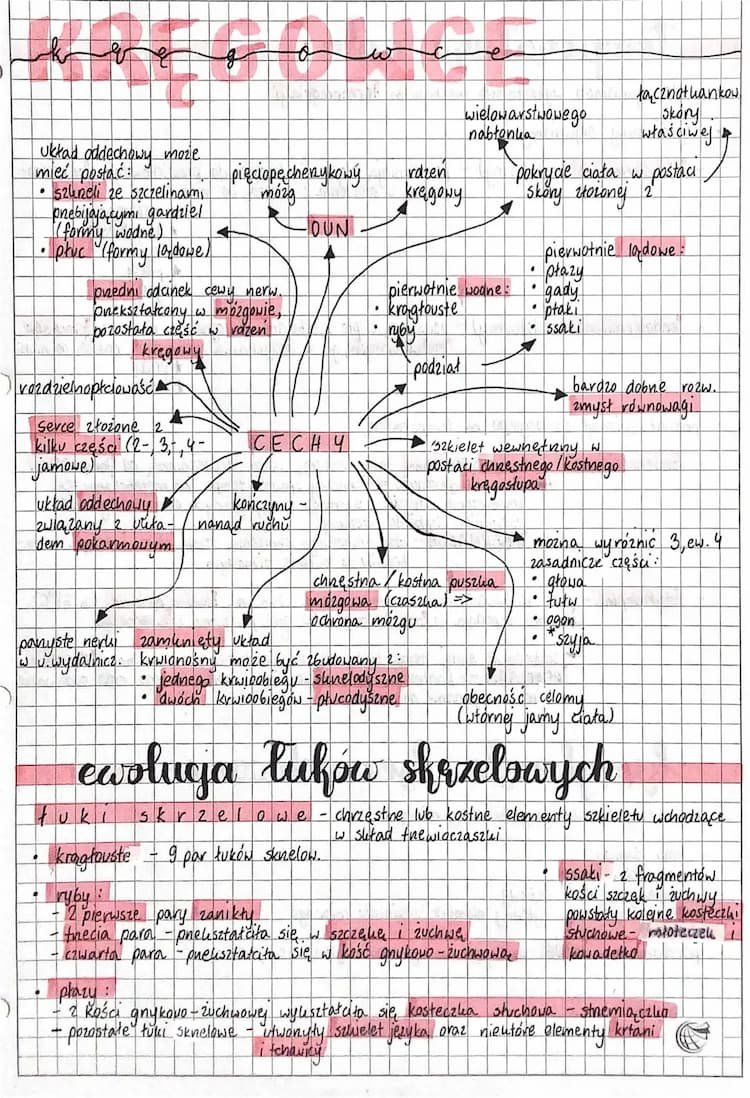 KRĘGOWCE
kręgowce
układ oddechowy może
mieć postać:
• skrzeli ze szczelinami
przebijającymi gardziel
(formy wodne)
• płuc (formy lądowe)
pięciopęcherzykowy
mózg
rdzeń
kręgowy
OUN
wielowarstwowego
nabłonka
łącznotkankow.
skóry
właściwej
pokrycie ciała w postaci
skóry złożonej z
przedni odcinek cewy nerw.
przekształcony w mózgowie,
pozostała część w rdzeń
kręgowy
pierwotnie wodne:
• krągłouste
• ryby
pierwotnie lądowe:
• płazy
• gady
• ptaki
• ssaki
podział
rozdzielnopłciowość
bardzo dobrze rozw.
zmysł równowagi
serce złożone z
kilku części (2-, 3-, 4-
jamowe)
CECHY
szkielet wewnętrzny w
postaci chrzęstnego/kostnego
kręgosłupa
układ oddechowy
związany z ukła-
dem pokarmowym
kończyny -
narząd ruchu
można wyróżnić 3, ew. 4
zasadnicze części:
• głowa
• tułw
• ogon
• *szyja
chrzęstna / kostna puszka
mózgowa (czaszka) =>
ochrona mózgu
parzyste nerki
w u. wydalnicz.
zamknięty układ
krwionośny może być zbudowany z:
• jednego krwioobiegu - skrzelodyszne
• dwóch krwioobiegów - płucodyszne
obecność celomy
(wtórnej jamy ciała)
ewolucja łuków skrzelowych
łuki skrzelowe - chrzęstne lub kostne elementy szkieletu wchodzące
w skład trzewioczaszki
• krągłouste - 9 par łuków skrzelow.
• ryby:
- 2 pierwsze pary zanikły
- trzecia para - przekształciła się w szczękę i żuchwę
- czwarta para - przekształciła się w kość gnykowo-żuchwową
• ssaki - z fragmentów
kości szczęk i żuchwy
powstały kolejne kosteczki
słuchowe - młoteczek i
kowadełko
• płazy:
- z kości gnykowo-żuchwowej wykształciła się kosteczka słuchowa - strzemiączko
- pozostałe łuki skrzelowe - utworzyły szkielet języka oraz niektóre elementy krtani
i tchawicy